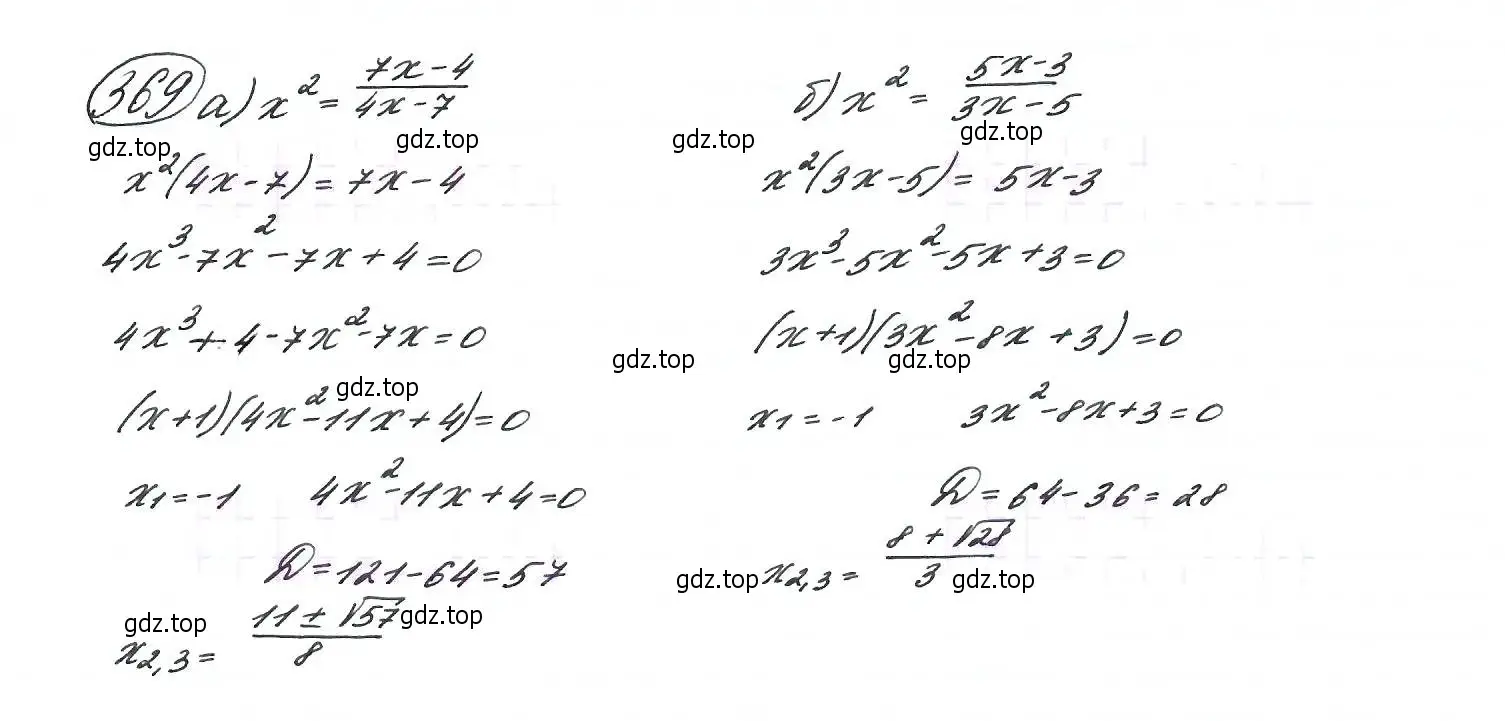 369 а) x² = (7x - 4)/(4x - 7)
gdz.top gdz.top
x²(4x - 7) = 7x - 4
4x³ - 7x² - 7x + 4 = 0
4x³ + 4 - 7x² - 7x = 0
gdz.top
(x + 1)(4x² - 11x + 4) = 0
x₁ = -1 4x² - 11x + 4 = 0
D = 121 - 64 = 57
gdz.top gdz.top
x₂,₃ = (11 ± √57)/8
б) x² = (5x - 3)/(3x - 5)
gdz.top gdz.top
x²(3x - 5) = 5x - 3
3x³ - 5x² - 5x + 3 = 0
(x + 1)(3x² - 8x + 3) = 0
gdz.top gdz.top
x₁ = -1 3x² - 8x + 3 = 0
D = 64 - 36 = 28
x₂,₃ = (8 + √28)/3
gdz.top gdz.top